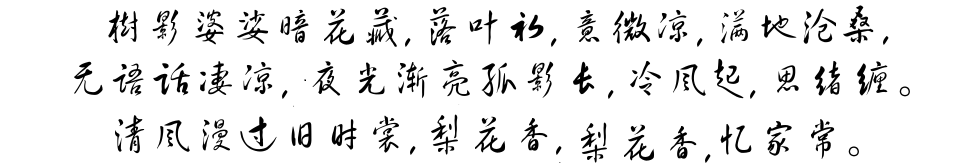 樹影婆娑暗花藏,落叶初,意微凉,满地沧桑,
无语话凄凉,夜光渐亮孤影长,冷风起,思绪缠。
清风漫过旧时裳,梨花香,梨花香,忆家常。